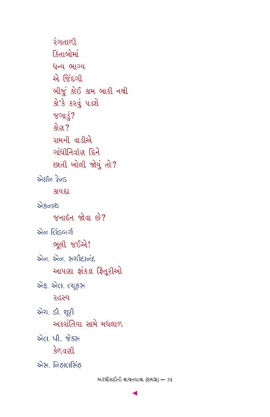 રંગતાળી
કિતાબોમાં
ધન્ય ભાગ્ય
એ જિંદગી
બીજું કોઈ કામ બાકી નથી
કો'કે કરવું પડશે
જગાડું?
કોણ?
રામની વાડીએ
ગાંધીનિર્વાણ દિને
છાતી ખોલી જોયું તો?
એઈન રેન્ડ
કાયદા
એકનાથ
જનાર્દન જોવા છે?
એન લિંડબર્ગ
ભૂલી જઈએ!
એન. એન. સચીદાનંદ
આપણા ફાંકડા ફિતૂરીઓ
એફ. એલ. લ્યૂકસ
રહસ્ય
એચ. ડી. શૂરી
અકરાંતિયા સામે મધલાળ
એલ. પી. જેક્સ
કેળવણી
એસ. નિહાલસિંહ
અરધી સદીની વાચનયાત્રા — 31